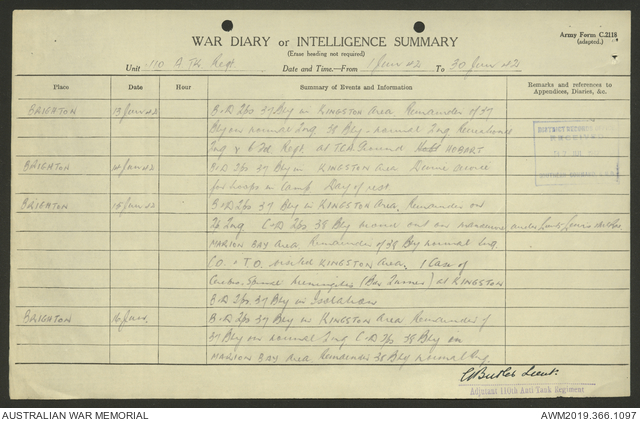 Army Form C.2118
(adapted.)
WAR DIARY or INTELLIGENCE SUMMARY
(Erase heading not required)
Unit 110 A Tk Regt Date and Time—From 1 Jun 42 To 30 Jun 42
Place Date Hour Summary of Events and Information Remarks and references to Appendices, Diaries, &c.
BRIGHTON 13 Jun 42 B-D Tps 37 Bty in KINGSTON Area Remainder of 37
Bty on normal Tng 38 Bty - normal Tng
Tng & Regt at TCA Ground HOBART
BRIGHTON 14 Jun 42 B-D Tps 37 Bty in KINGSTON Area Divine Service
for troops in camp Day of rest
BRIGHTON 15 Jun 42 B-D Tps 37 Bty in KINGSTON Area, Remainder on
Tng C-D Tps 38 Bty moved out on manoeuvre under
MARION BAY area Remainder of 38 Bty normal Tng.
C.O. & T.O. visited KINGSTON Area, 1 Case of
Cerebro-Spinal Meningitis (Gnr) at KINGSTON
B-D Tps 37 Bty in Isolation
BRIGHTON 16 Jun. B-D Tps 37 Bty in KINGSTON Area Remainder of
37 Bty on normal Tng C-D Tps 38 Bty in
MARION BAY Area Remainder 38 Bty Normal Tng.
Butler Lieut.
Adjutant 110th Anti Tank Regiment
AUSTRALIAN WAR MEMORIAL
AWM2019.366.1097